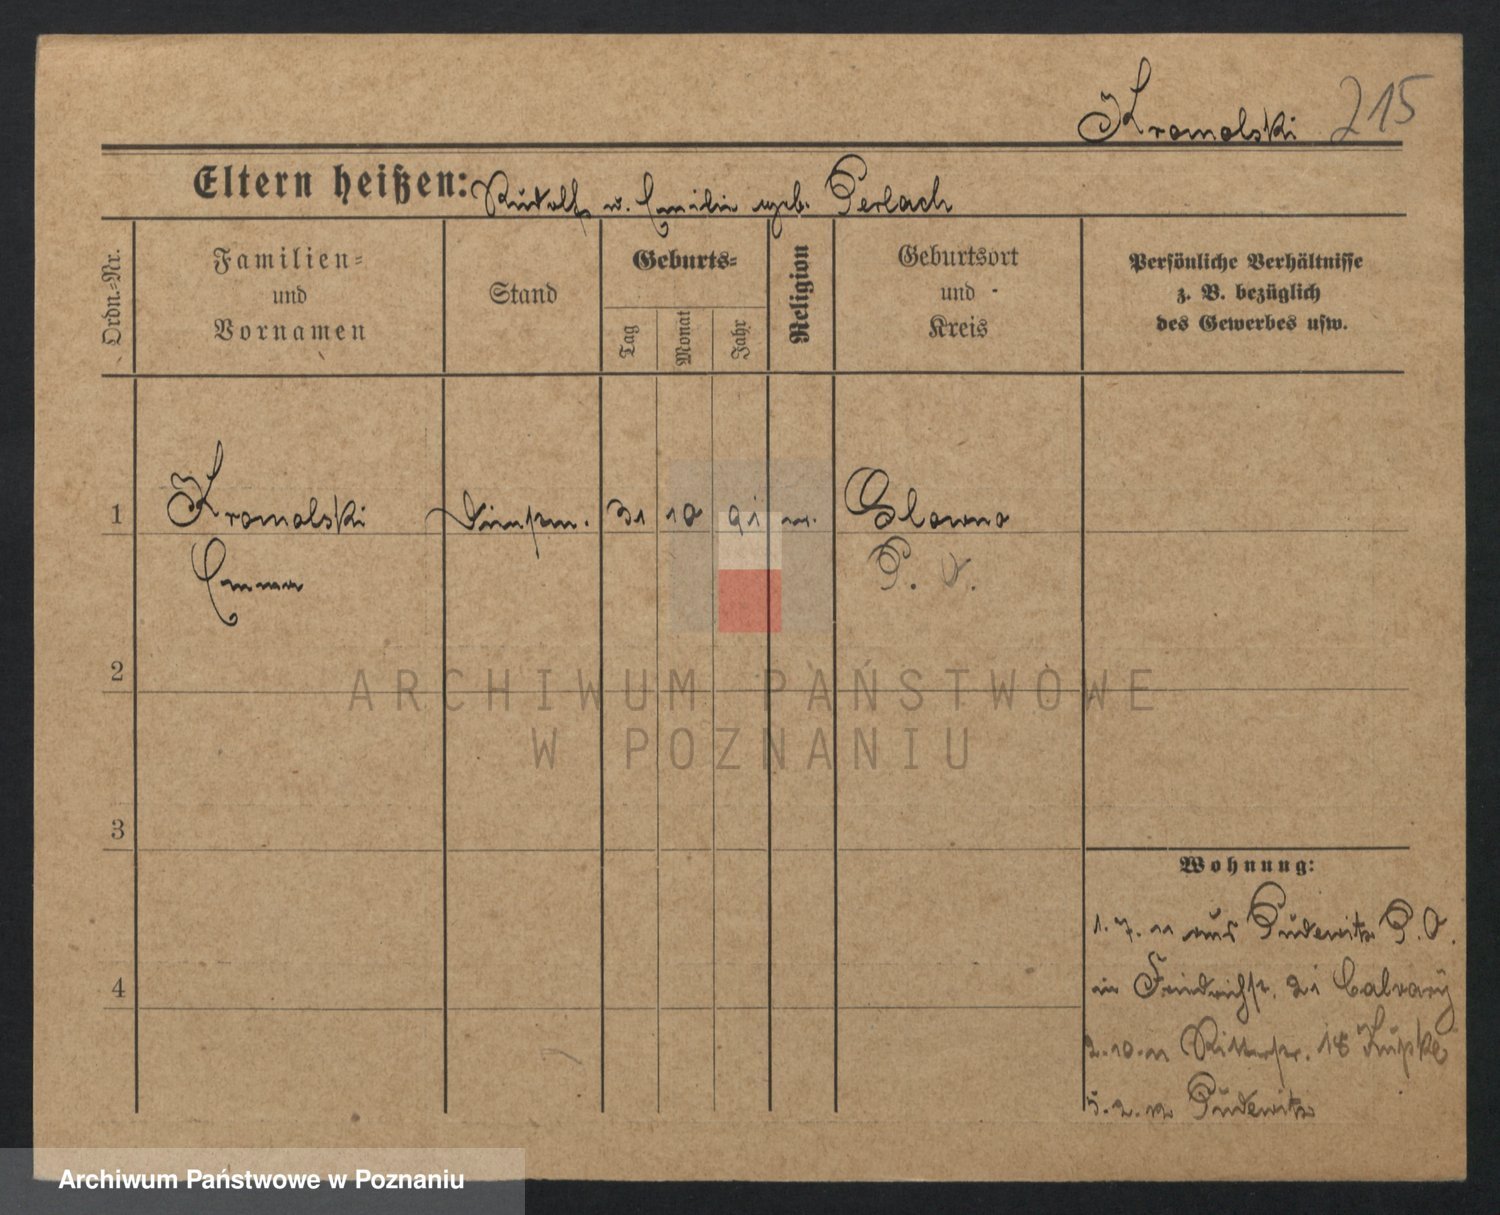 Kromolski 215
Eltern heißen: Rudolf u. Emilie geb. Gerlach
Ordn.-Nr.
Familien-
und
Vornamen
Stand
Geburts-
Tag
Monat
Jahr
Religion
Geburtsort
und
Kreis
Persönliche Verhältnisse
z. B. bezüglich
des Gewerbes usw.
1 Kromolski 31 10 91 Glowno
Emma P. O.
2
ARCHIWUM PAŃSTWOWE
W POZNANIU
3
Wohnung:
1. 7. 11 aus Pudewitz P. O.
in Friedrichstr. 21 Calvary
4
2. 10. 11 Ritterstr. 18
5. 2. 12 Pudewitz
Archiwum Państwowe w Poznaniu